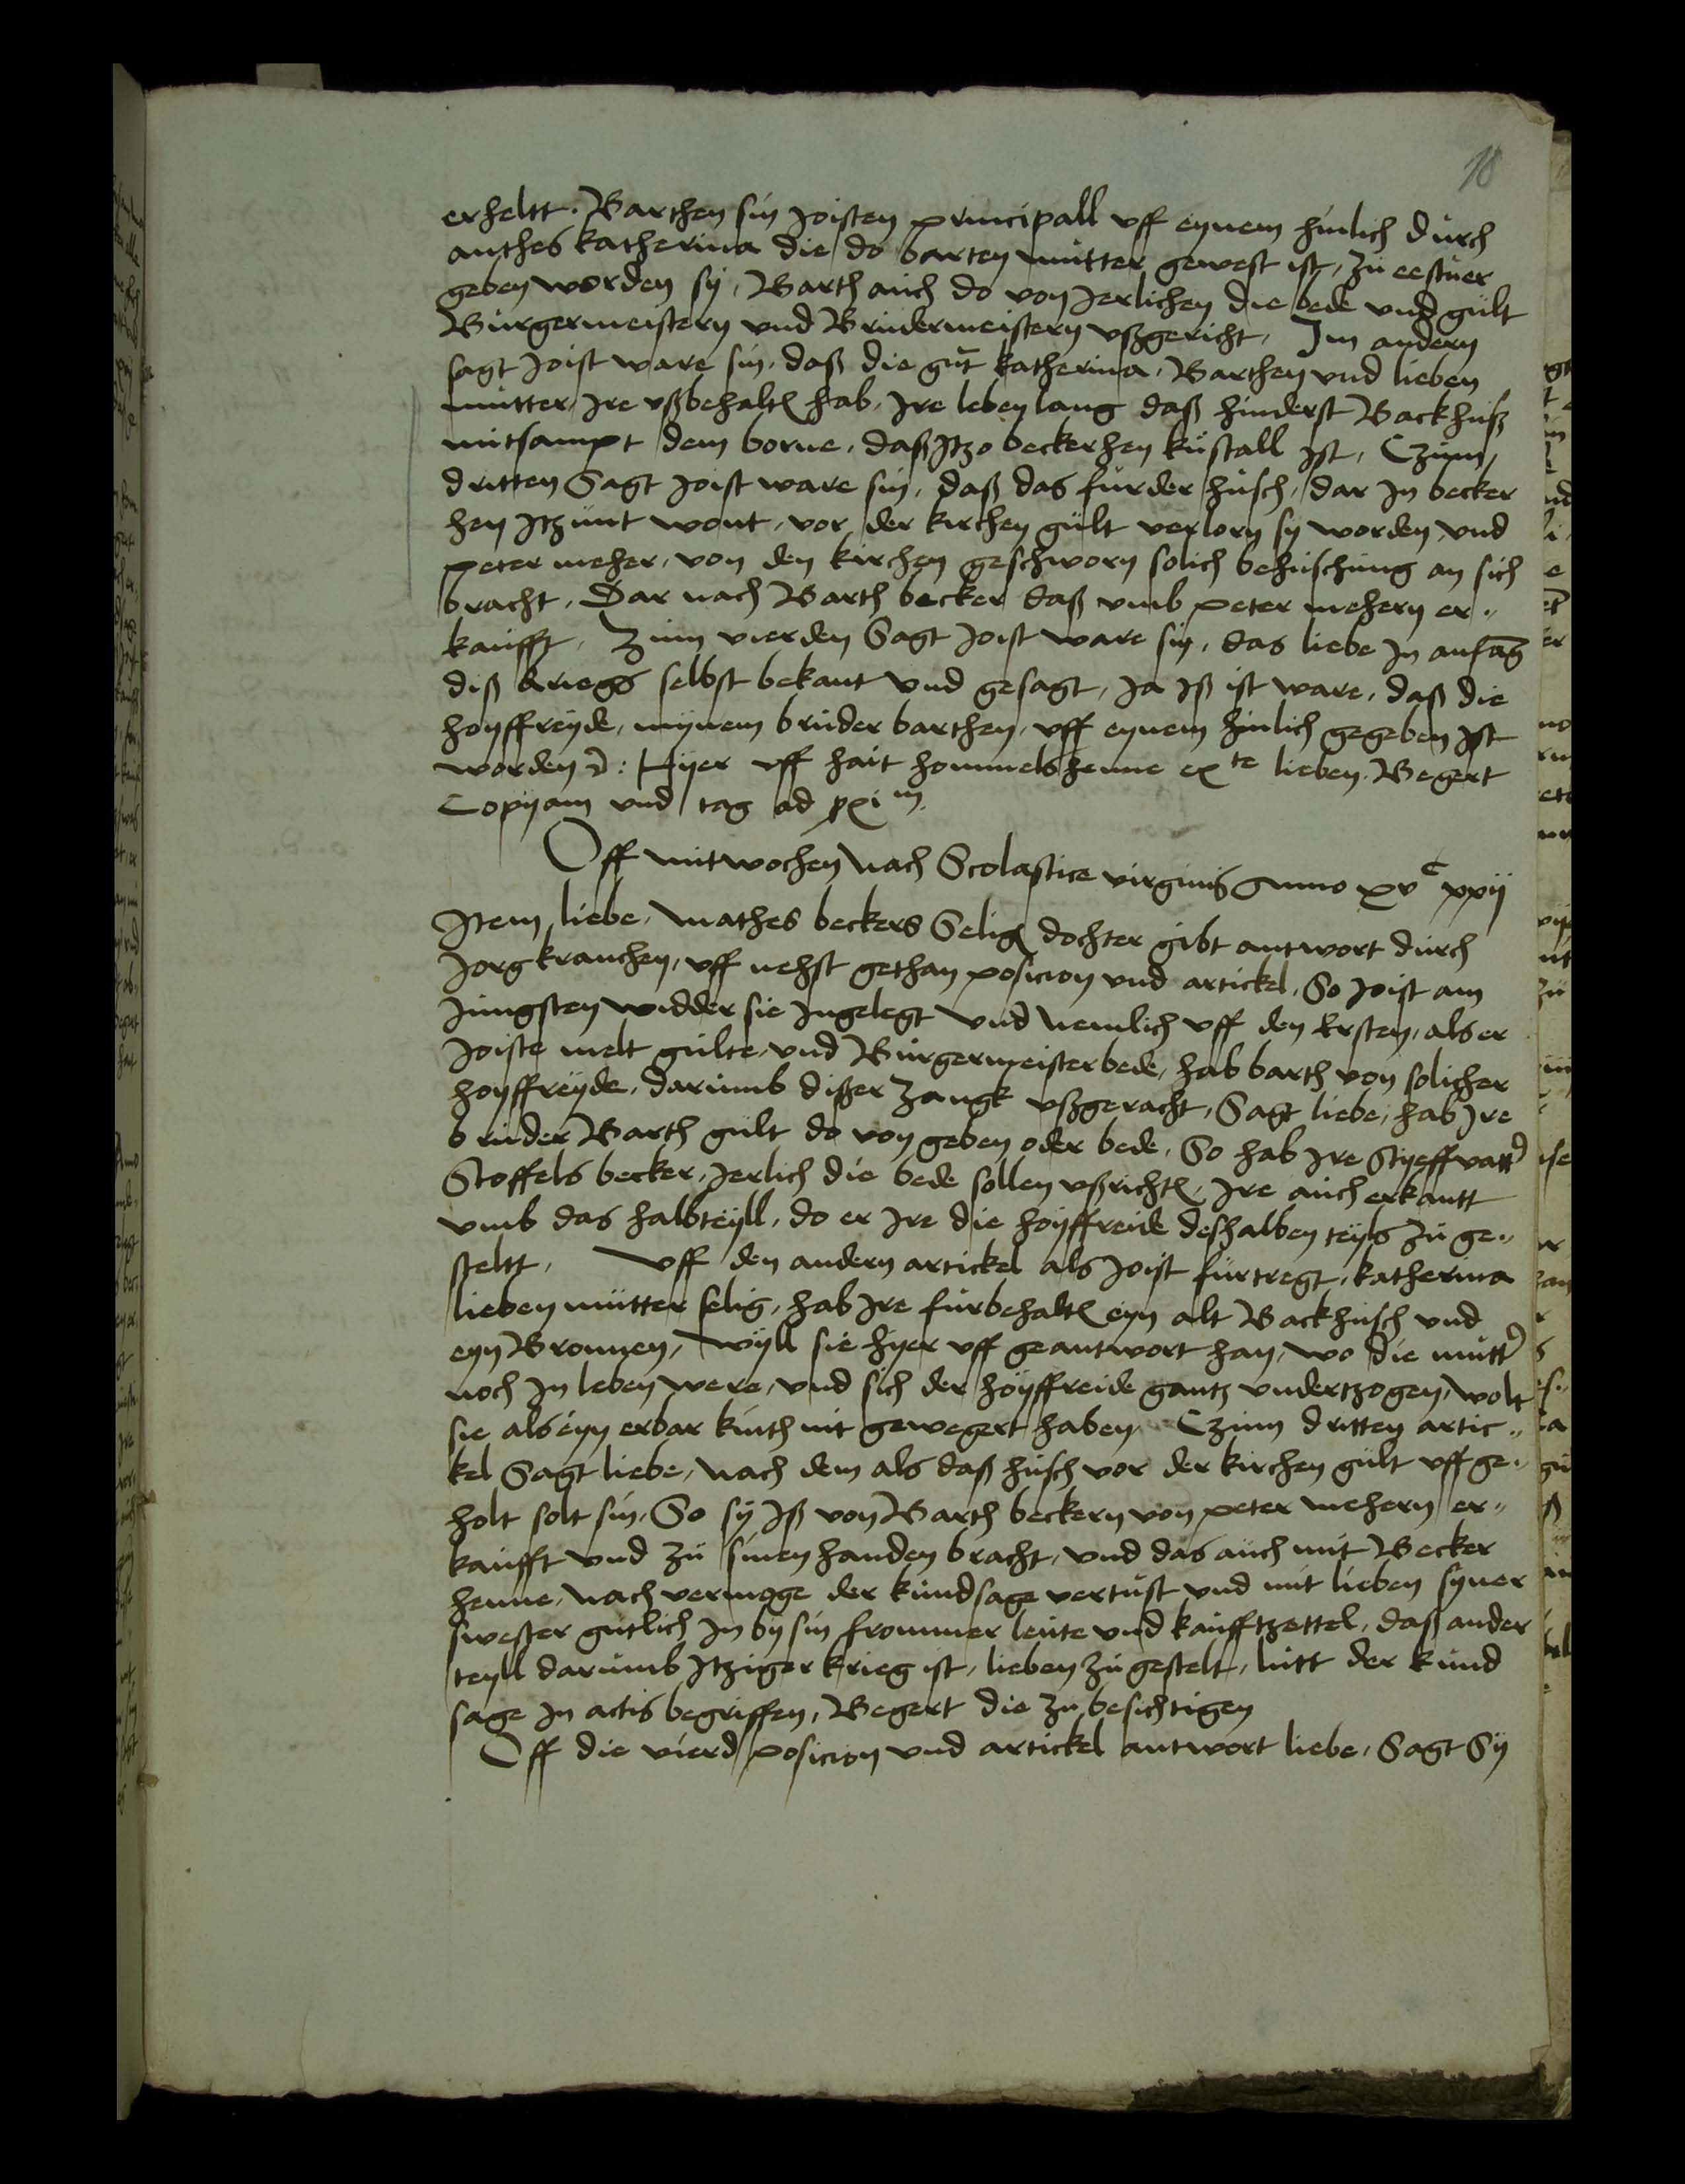 18
erheltt. Barthen sin Joisten principall vff eynem hinlich durch
anthes katherina die do barten mutter gewest ist, zu eestuer
geben worden sy, Barth auch do von Jerlichen die bede und gult
Burgermeistern und Brudermeistern vßgericht, Im andern
sagt Joist ware sin, daß die gut katherina, Barthen und lieben
mutter, Jre vßbehalten hab, Jre leben lang daß hinderst Backhuß
mitsampt dem borne, daß Jtzo beckerhen kustall Jst, Czum
dritten Sagt Joist ware sin, daß das furder husch, dar Jn becker
hen Jtzunt wont, vor der kirchen gult verlorn sy worden, und
peter meher, von den kirchen geschworn solich behuschung an sich
bracht, Dar nach Barth becker daß vmb peter mehern er„
kaufft, Zum vierden Sagt Joist ware sin, das liebe Jn anfang
diß kriegs selbst bekant und gesagt, Ja Jß ist ware, daß die
hoyffreyde, mynem bruder barthen, vff eynem hinlich gegeben Jst
worden : Hyer vff hait hommelshenne ex te lieben, Begert
Copyam und tag ad pxi m
Off mitwochen nach Scolastice virginis Anno xv c xxij
Jtem liebe, mathes beckers Selig dochter gibt antwort durch
Jorg kranchen, vff nehst gethan posicion und artickel, So Joist am
Jungsten widder sie Jngelegt und nemlich vff den Ersten, als er
Joiste melt gulte, und Burgermeister bede, hab barth von solicher
hoyffreyde, darumb disser zangk vßgeracht, Sagt liebe, hab Jre
bruder Barth gult do von geben oder bede, So hab Jre Styeffvatter
Stoffels becker, Jerlich die bede sollen vßrichten, Jre auch erkantt
vmb das halbteyll, do er Jre die hoyffreide deshalben teyls zu ge„
steltt, Vff den andern artickel als Joist furtregt, katherina
lieben mutter selig, hab Jre furbehalten eyn alt Backhusch und
eyn Bronnen, wyll sie hyer vff geantwort han, wo die mutter
noch Jn leben were, und sich der hoyffreide gantz undertzogen, wolt
sie als eyn erbar kinth nit gewegert haben, Czum dritten artic„
kel Sagt liebe, nach dem als daß husch vor der kirchen gult vff ge„
holt solt sin, So sy Jß von Barth beckern von peter mehern er„
kaufft und zu sinen handen bracht, und das auch mit Becker
henne, nach vermoge der kundsage vertust und mit lieben syner
swester gutlich Jn by sin frommer leute und kaufftzettel, daß ander
teyll darumb Jtziger krieg ist, lieben zu gestelt, lutt der kund
sage Jn actis begriffen, Begert die zu besichtigen
Off die vierd posicion und artickel antwort liebe, Sagt Sy